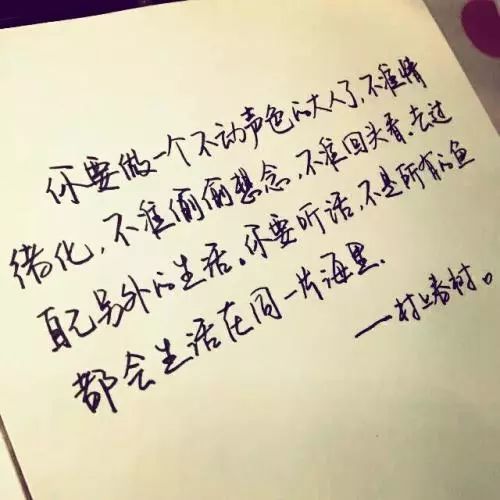 你要做一个不动声色的大人了。不准情
绪化，不准偷偷想念，不准回头看。去过
自己另外的生活。你要听话，不是所有的鱼
都会生活在同一片海里。
——村上春树。